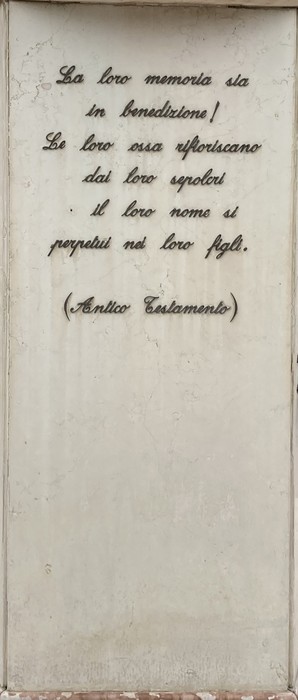 La loro memoria sia
in benedizione!
Le loro ossa rifioriscano
dai loro sepolcri
il loro nome si
perpetui nei loro figli.
(Antico Testamento)